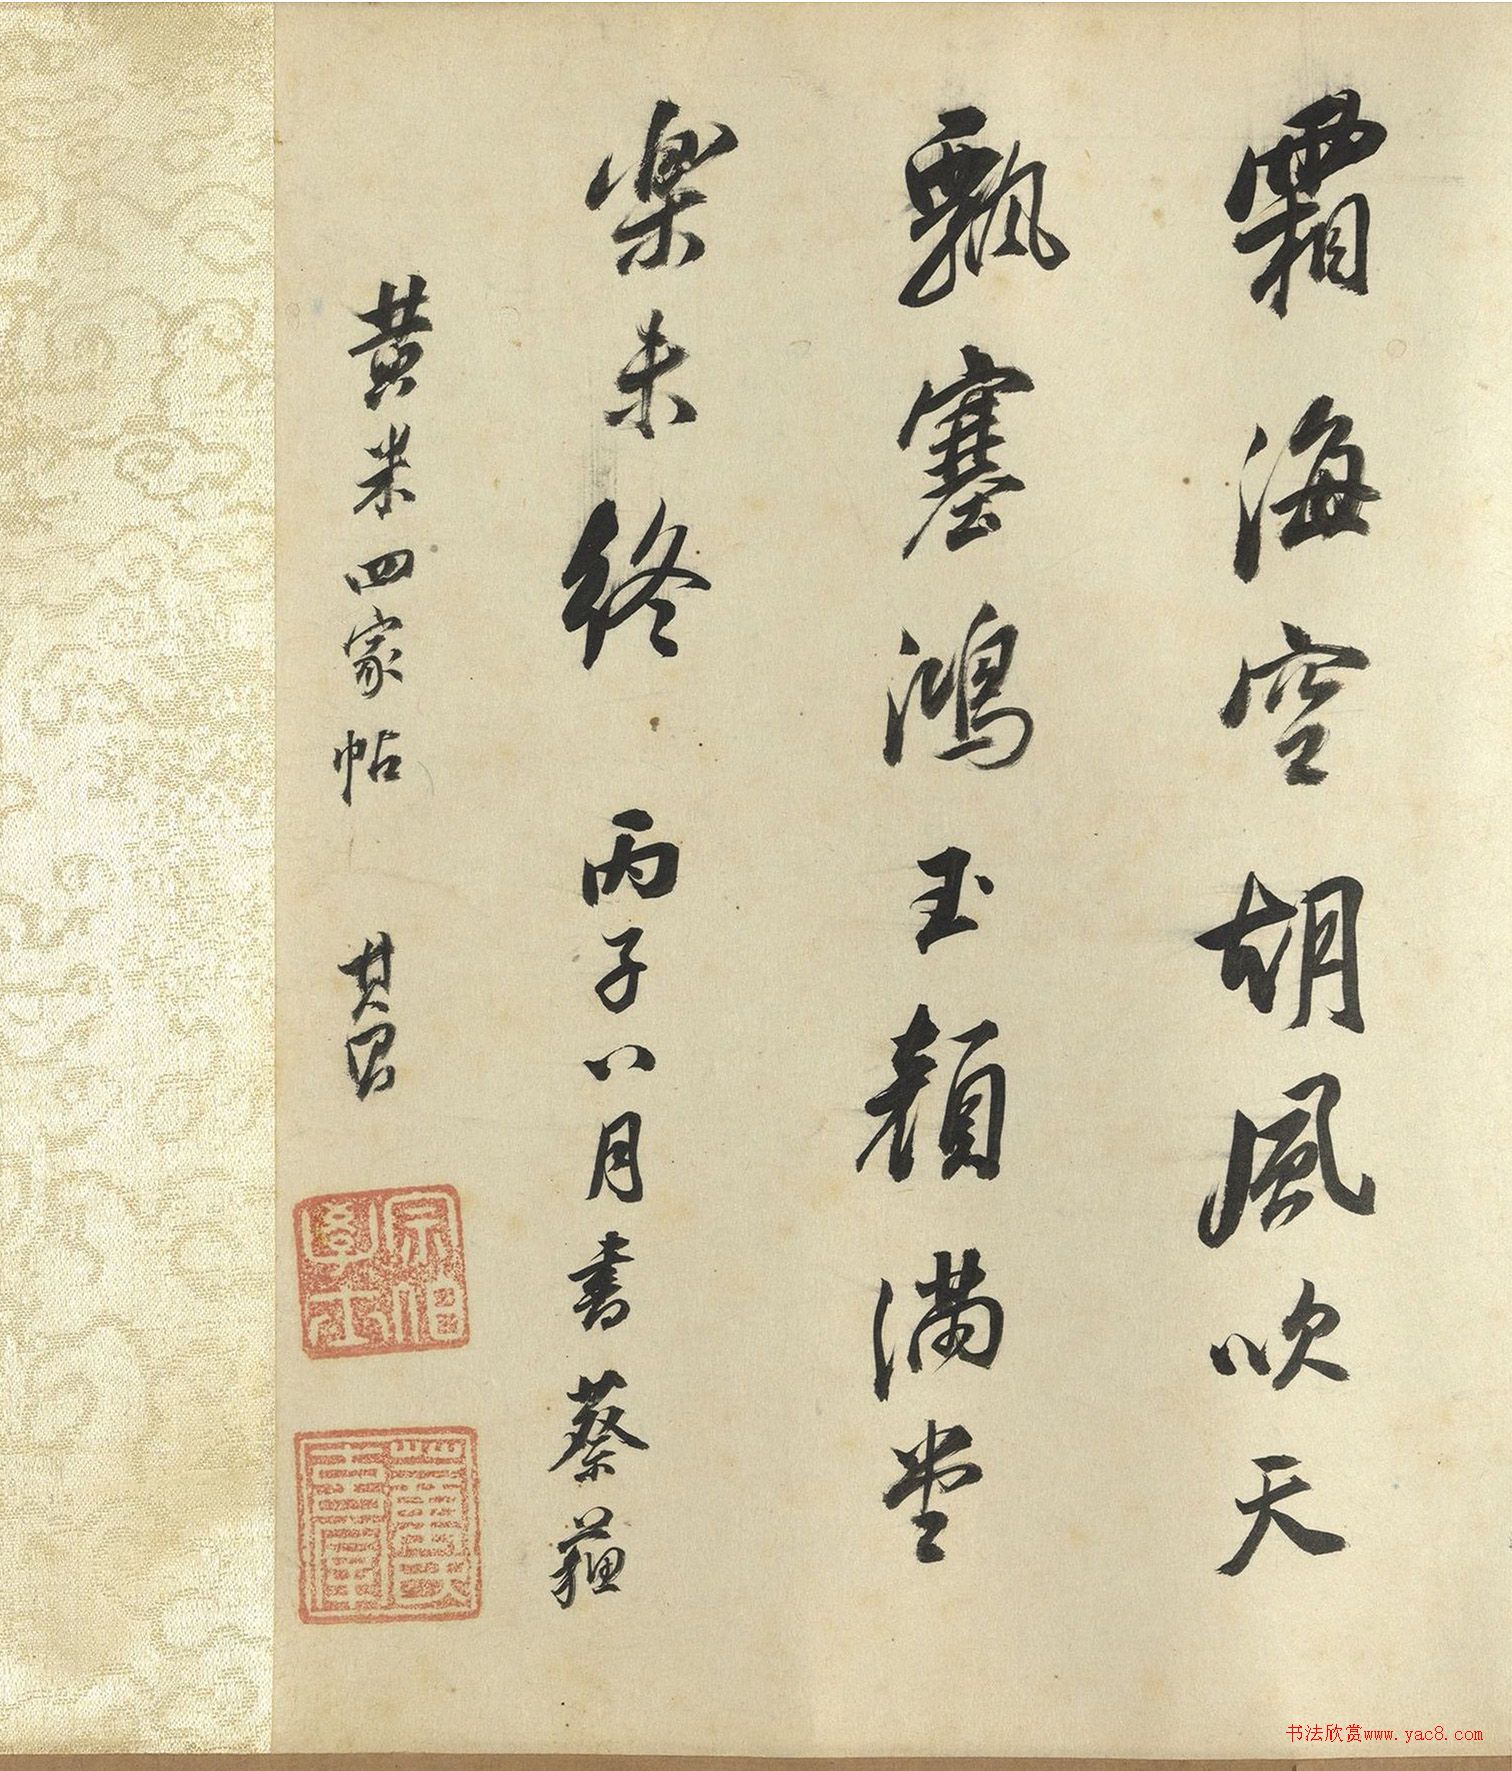 霜海空胡風吹天
飄塞鴻玉顏滿堂
樂未終 丙子八月書蔡蘓
黄米四家帖 其昌
宗伯學士
董其昌印
书法欣赏www.yac8.com